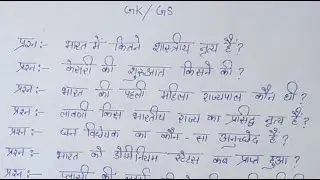 GK/GS
प्रश्न:- भारत में कितने शास्त्रीय नृत्य हैं?
प्रश्न:- केसरी की शुरुआत किसने की?
प्रश्न:- भारत की पहली महिला राज्यपाल कौन थी?
प्रश्न:- लावणी किस भारतीय राज्य का प्रसिद्ध नृत्य है?
प्रश्न:- धन विधेयक का कौन-सा अनुच्छेद है?
प्रश्न:- भारत को डोमिनियम स्टेटस कब प्राप्त हुआ?
प्रश्न:- प्लासी की